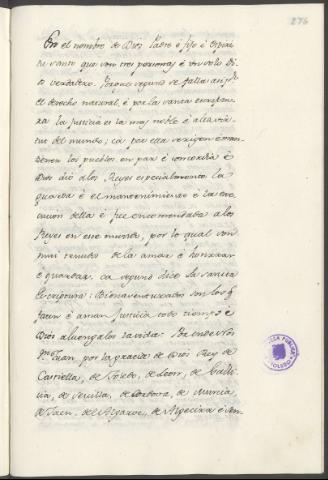 276
En el nombre de Dios Padre é fijo é Espiri-
tu santo que son tres personas é un solo Di-
os verdadero. Porque segund se falla asi p.r
el derecho natural, é por la santa escriptu-
ra la justicia es la mas noble é alta vir-
tud del mundo; ca por ella se rigen é man-
tienen los pueblos en paz é concordia é
Dios dio alos Reyes especialmente la
guarda é el mantenimiento é la exe-
cucion della é fue encomendada alos
Reyes en este mundo, por lo qual son
mas tenudos de la amar é honrrar
é guardar. ca segund dice la santa
Escriptura: Bienaventurados son los q.
facen é aman Justicia todo tiempo é
Dios aluengales la vida. Por ende Yo
Juan por la gracia de Dios Rey de
Castiella, de Toledo, de Leon, de Galli-
cia, de Sevilla, de Cordova, de Murcia,
de Jaen, del Algarve, de Algecira é Sen-
PUBLICA
TOLEDO